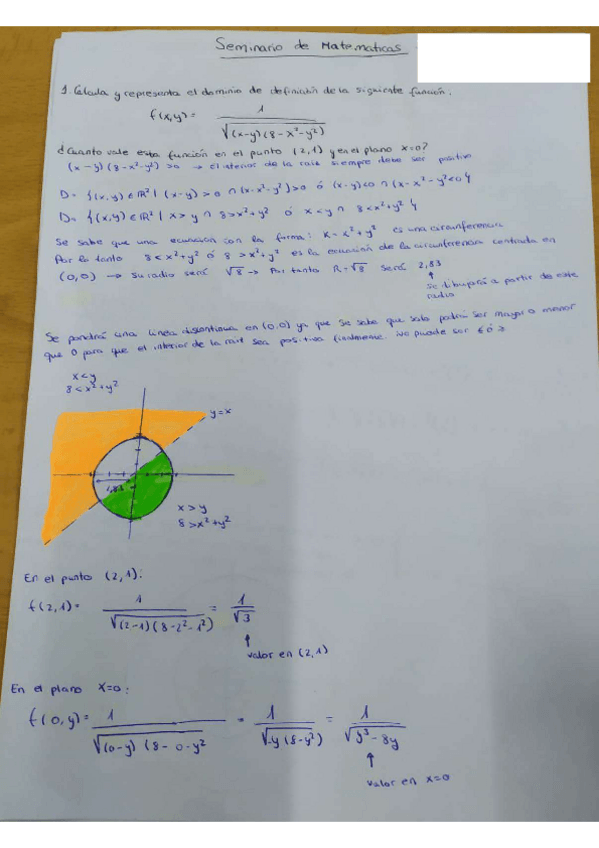 Seminario de Matematicas
1. Calcula y representa el dominio de definición de la siguiente función:
f(x,y) = 1 / √((x-y)(8-x²-y²))
¿Cuanto vale esta función en el punto (2,1) y en el plano x=0?
(x-y)(8-x²-y²) >0 → el interior de la raíz siempre debe ser positivo
D = {(x,y) ∈ ℝ² | (x-y)>0 ∩ (x-x²-y²)>0 ó (x-y)<0 ∩ (x-x²-y²<0}
D = {(x,y) ∈ ℝ² | x>y ∩ 8>x²+y² ó x<y ∩ 8<x²+y²}
Se sabe que una ecuación con la forma: K=x²+y² es una circunferencia
Por lo tanto 8<x²+y² ó 8>x²+y² es la ecuación de la circunferencia centrada en
(0,0) → Su radio será √8 → Por tanto R=√8 será 2,83
↑
se dibujará a partir de este
radio
Se pondrá una línea discontinua en (0.0) ya que se sabe que solo podrá ser mayor o menor
que 0 para que el interior de la raíz sea positiva finalmente. No puede ser ≤ ó ≥
x<y
8<x²+y²
y=x
x>y
8>x²+y²
En el punto (2,1):
f(2,1)= 1 / √((2-1)(8-2²-1²)) = 1 / √3
↑
valor en (2,1)
En el plano x=0:
f(0,y)= 1 / √((0-y)(8-0-y² = 1 / √(-y(8-y²)) = 1 / √(y³-8y)
↑
valor en x=0